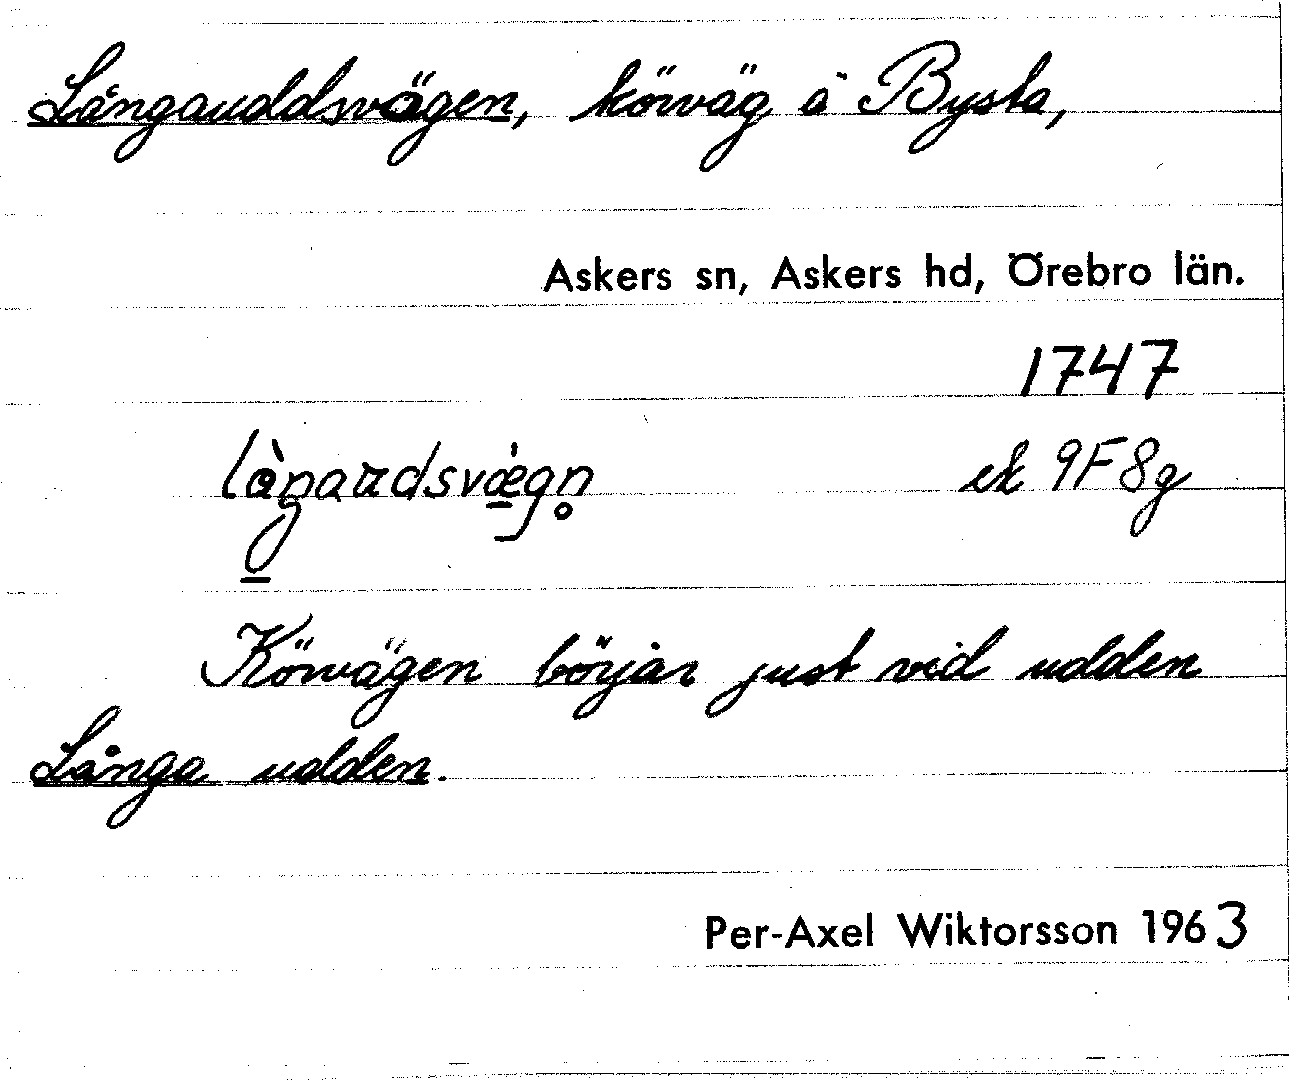 Långauddsvägen, körväg å Bysta,
Askers sn, Askers hd, Örebro län.
1747
ek 9F8g
Körvägen börjar just vid udden
Långa udden.
Per-Axel Wiktorsson 1963